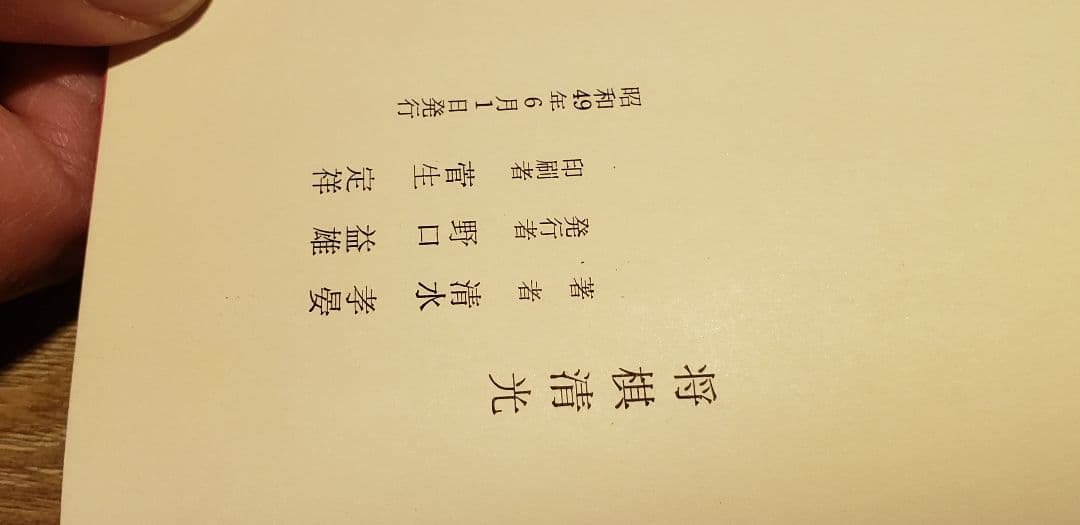 将棋清光
著者 清水孝晏
発行者 野口益雄
印刷者 菅生定祥
昭和49年6月1日発行